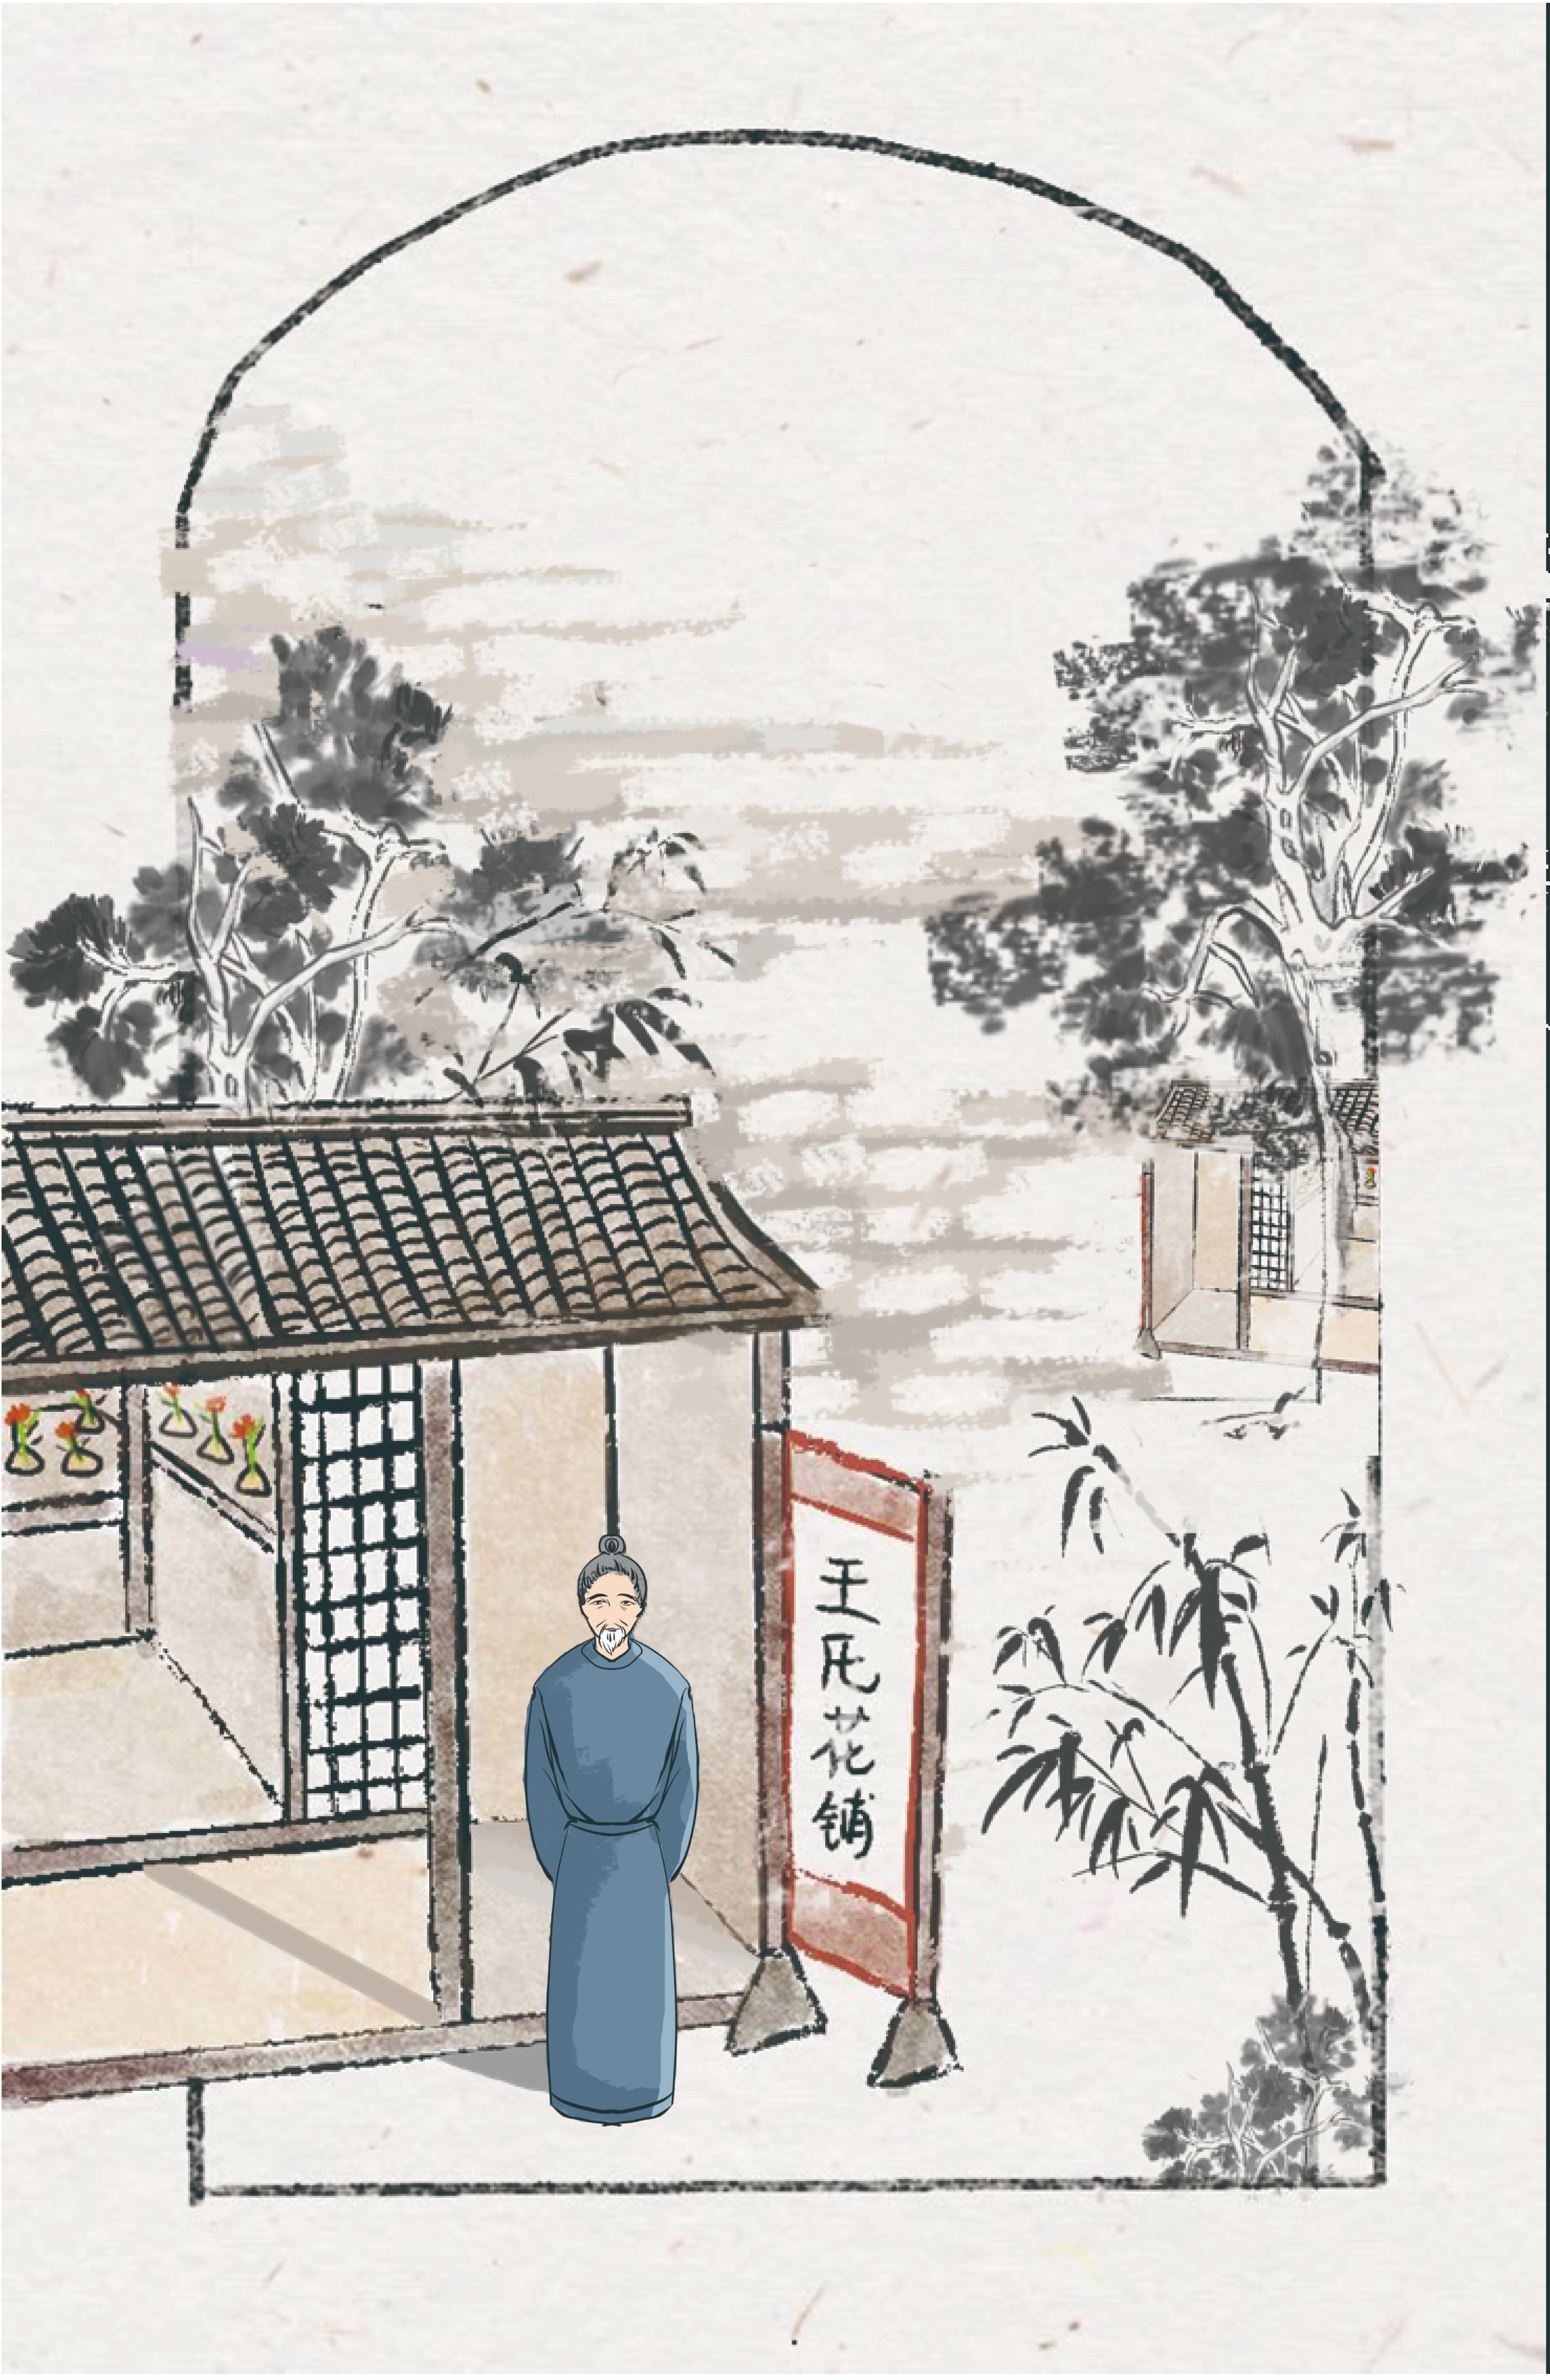 王氏花铺